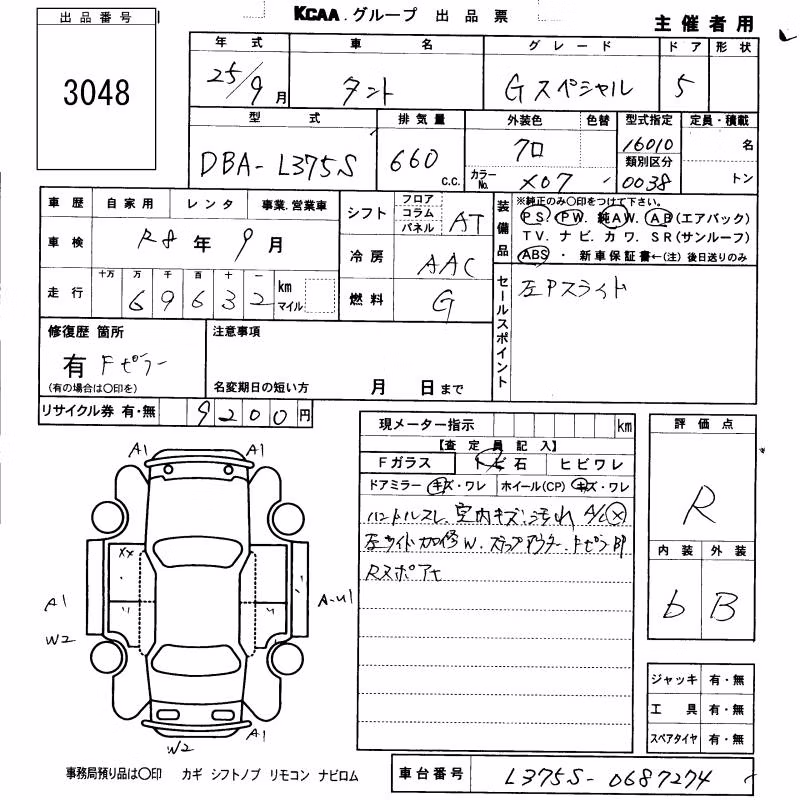 出品番号
KCAA.グループ 出品票
主催者用
3048
年式 車名 グレード ドア 形状
25/9月 タント Gスペシャル 5
型式 排気量 外装色 色替 型式指定 定員・積載
DBA-L375S 660 c.c. クロ 16010 名
カラーNo. X07 類別区分 0038 トン
車歴 自家用 レンタ 事業.営業車
車検 R8年9月
走行 十万 万 千 百 十 一
69632 km マイル
シフト フロア コラム パネル AT
冷房 AAC
燃料 G
装備品
※純正のみ〇印をつけて下さい。
PS. PW. 純AW. AB(エアバック)
TV. ナビ. カワ. SR(サンルーフ)
ABS・新車保証書←(注)後日送りのみ
セールスポイント
左Pスライド
修復歴 箇所
有 Fピラー
(有の場合は〇印を)
注意事項
名変期日の短い方 月 日まで
リサイクル券 有・無 9200円
現メーター指示 km
【査定員記入】
Fガラス トビ石 ヒビワレ
ドアミラー キズ・ワレ ホイール(CP) キズ・ワレ
ハンドルスレ 室内キズ 汚れ A/C×
左サイド加修W. ステップアウター. Fピラー
Rスポアナ
評価点
R
内装 外装
b B
ジャッキ 有・無
工具 有・無
スペアタイヤ 有・無
A1 A1
XX
A1 A-U1
W2
W2 A1
事務局預り品は〇印 カギ シフトノブ リモコン ナビロム
車台番号 L375S-0687274